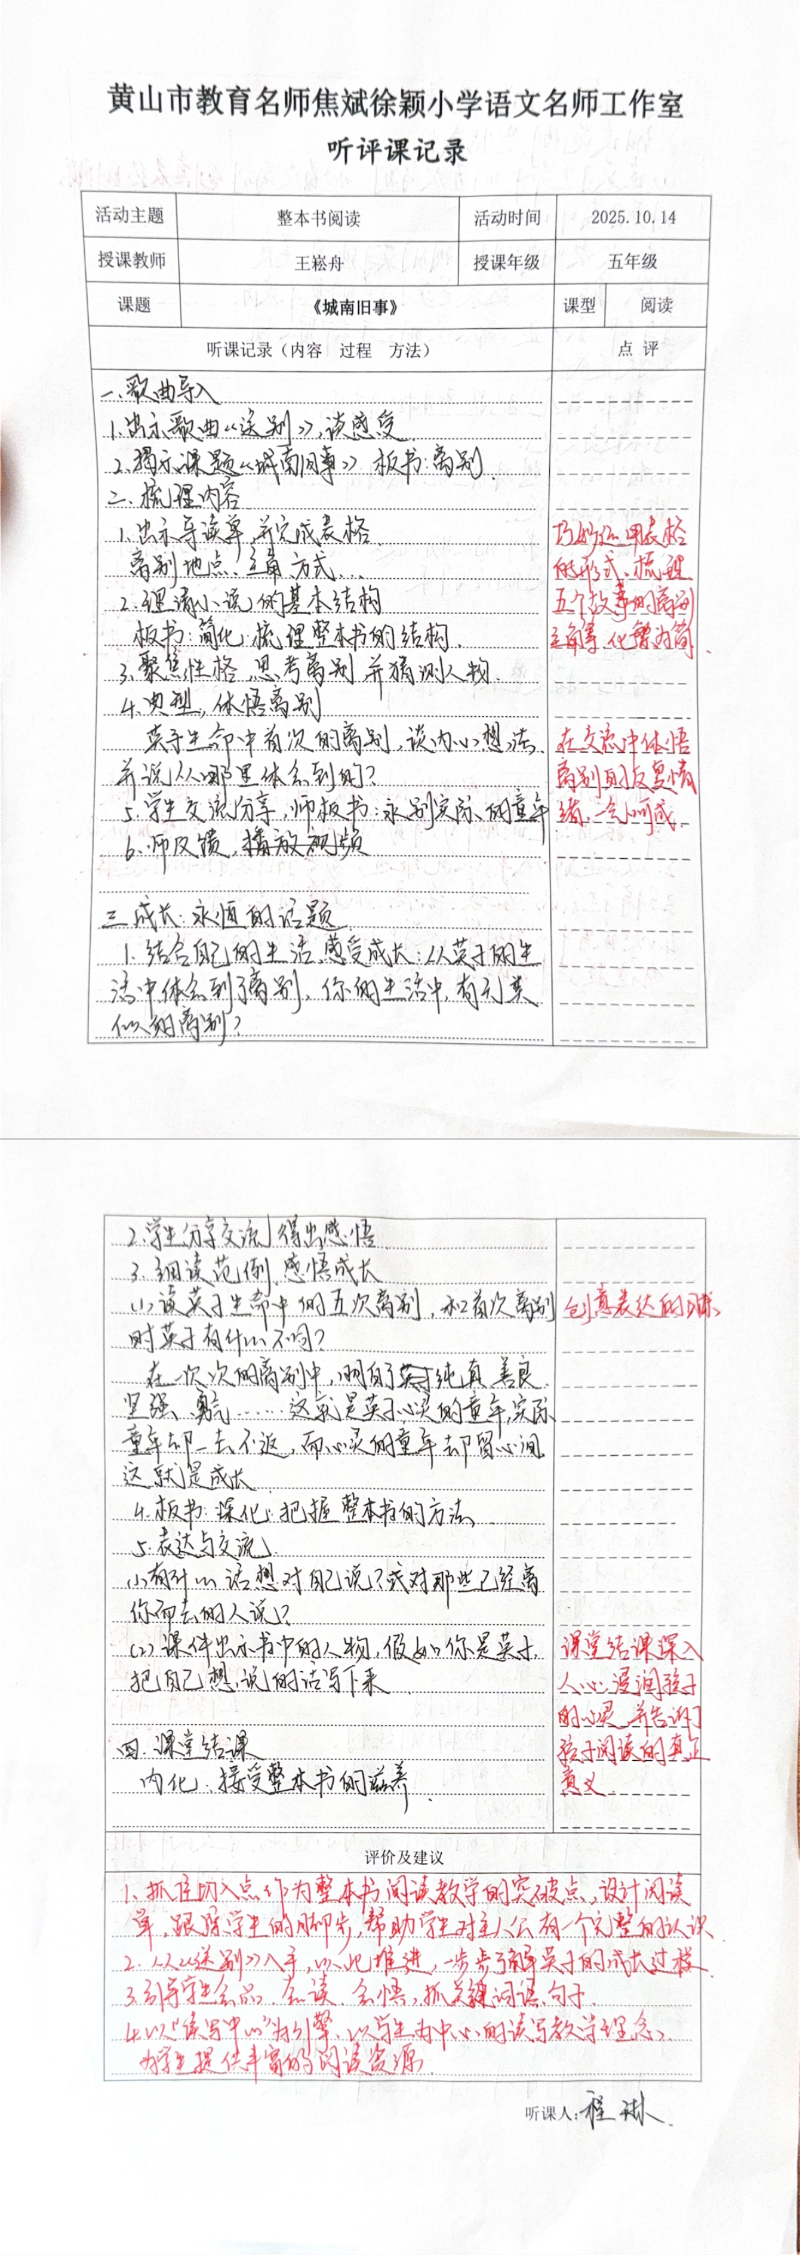 黄山市教育名师焦斌徐颖小学语文名师工作室
听评课记录
活动主题 整本书阅读 活动时间 2025.10.14
授课教师 王崧舟 授课年级 五年级
课题 《城南旧事》 课型 阅读
听课记录（内容 过程 方法） 点 评
一.歌曲导入
1.出示歌曲《送别》,谈感受
2.揭示课题《城南旧事》 板书:离别
二、梳理内容
1.出示导读单,并完成表格
离别地点、主角、方式...
2.理清小说的基本结构
板书:简化:梳理整本书的结构.
3.聚焦性格,思考离别并猜测人物.
4.典型,体悟离别
英子生命中首次的离别,谈内心想法,
并说从哪里体会到的?
5.学生交流分享,师板书:永别实际的童年
6.师反馈,播放视频
三.成长:永恒的话题
1.结合自己的生活,感受成长:从英子的生
活中体会到了离别,你的生活中,有无类
似的离别?
巧妙运用表格
的形式、梳理
五个故事的离别
主角等,化繁为简.
在交流中体悟
离别的反复情
绪,一气呵成.
2.学生分享交流,得出感悟
3.细读范例,感悟成长
(1)读英子生命中的五次离别,和首次离别
时英子有什么不同?
在一次次的离别中,明白了英子纯真、善良、
坚强、勇气......这就是英子心灵的童年,实际
童年却一去不返,而心灵的童年却留心间
这就是成长
4.板书:深化:把握整本书的方法.
5.表达与交流
(1)有什么话想对自己说?或对那些已经离
你而去的人说?
(2)课件出示书中的人物,假如你是英子,
把自己想说的话写下来
四.课堂结课
内化:接受整本书的滋养.
创意表达的
课堂结课深入
人心,浸润孩子
的心灵,并告诉
孩子阅读的真正
意义.
评价及建议
1.抓住切入点作为整本书阅读教学的突破点,设计阅读
单,跟随学生的脚步,帮助学生对主人公有一个完整的认识.
2.从《送别》入手,以此推进,一步步了解英子的成长过程.
3.引导学生会品、会读、会悟,抓关键词语、句子.
4.以"读写中心"为引擎,以学生为中心的读写教学理念,
为学生提供丰富的阅读资源.
听课人:程琳.